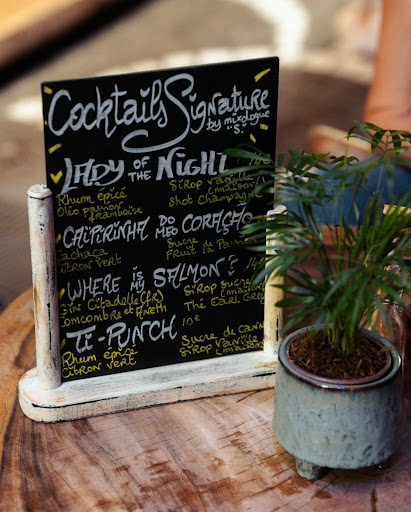 Cocktails Signature
by mixologue
"S."
LADY OF THE NIGHT
Rhum épicé Sirop vanille
Oleo (maison)
framboise Shot Champagne
CAÏPIRINHA DO MEO CORAÇAO
Cachaça Sucre
Citron vert Fruit de la Passion
WHERE IS MY SALMON?
Gin Citadelle (FR) Sirop sucre
Concombre et Aneth (maison)
Thé Earl Grey
TI-PUNCH 10€
Rhum épicé Sucre de canne
Citron vert Sirop Vanille
(maison)